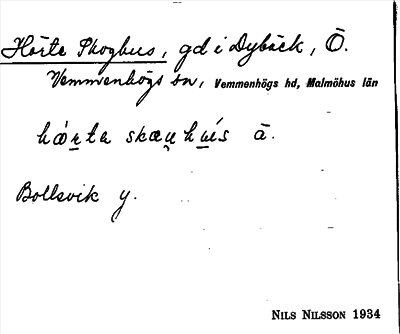 Hörte Skoghus, gd i Dybäck, Ö.
Vemmenhögs sn, Vemmenhögs hd, Malmöhus län
hǿrta skæu̯hu̲ís ā.
Bollsvik y.
NILS NILSSON 1934